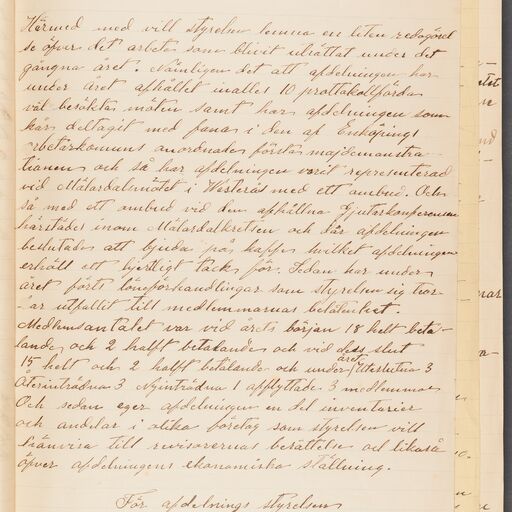 Härmed med vill styrelsen lemna en liten redogörel
se öfver det arbete som blivit uträttat under det
gångna året. Nämligen det att afdelningen har
under året afhållet inalles 10 protokollförda
väl besökta möten samt har afdelningen som
kår deltagit med fana i den af Enköpings
arbetarkomuns anordnade första majdemonstra
tionen och så har afdelningen varit representerad
vid Mälardalsmötet i Westerås med ett ombud. Och
så med ett ombud vid den afhållna Gjutarekonferensen
härstädes inom Mälardalkretsen och där afdelningen
beslutade att bjuda på kaffe hvilket afdelningen
erhölt ett hjertligt tack för. Sedan har under
året förts löneförhandlingar som styrelsen sig tror
har utfallit till medlemmarnas belåtenhet.
Medlemsantalet var vid årets början 18 helt beta-
lande och 2 halft betalande och vid dess slut
15 helt och 2 halft betalande och under året Uteslutna 3
Återinträdna 3 Nyinträdna 1 afflyttade 3 medlemmar
Och sedan eger afdelningen en del inventarier
och andelar i olika företag som styrelsen vill
hänvisa till revisorernas berättelse och likaså
öfver afdelningens ekonomiska ställning.
För afdelnings styrelsen